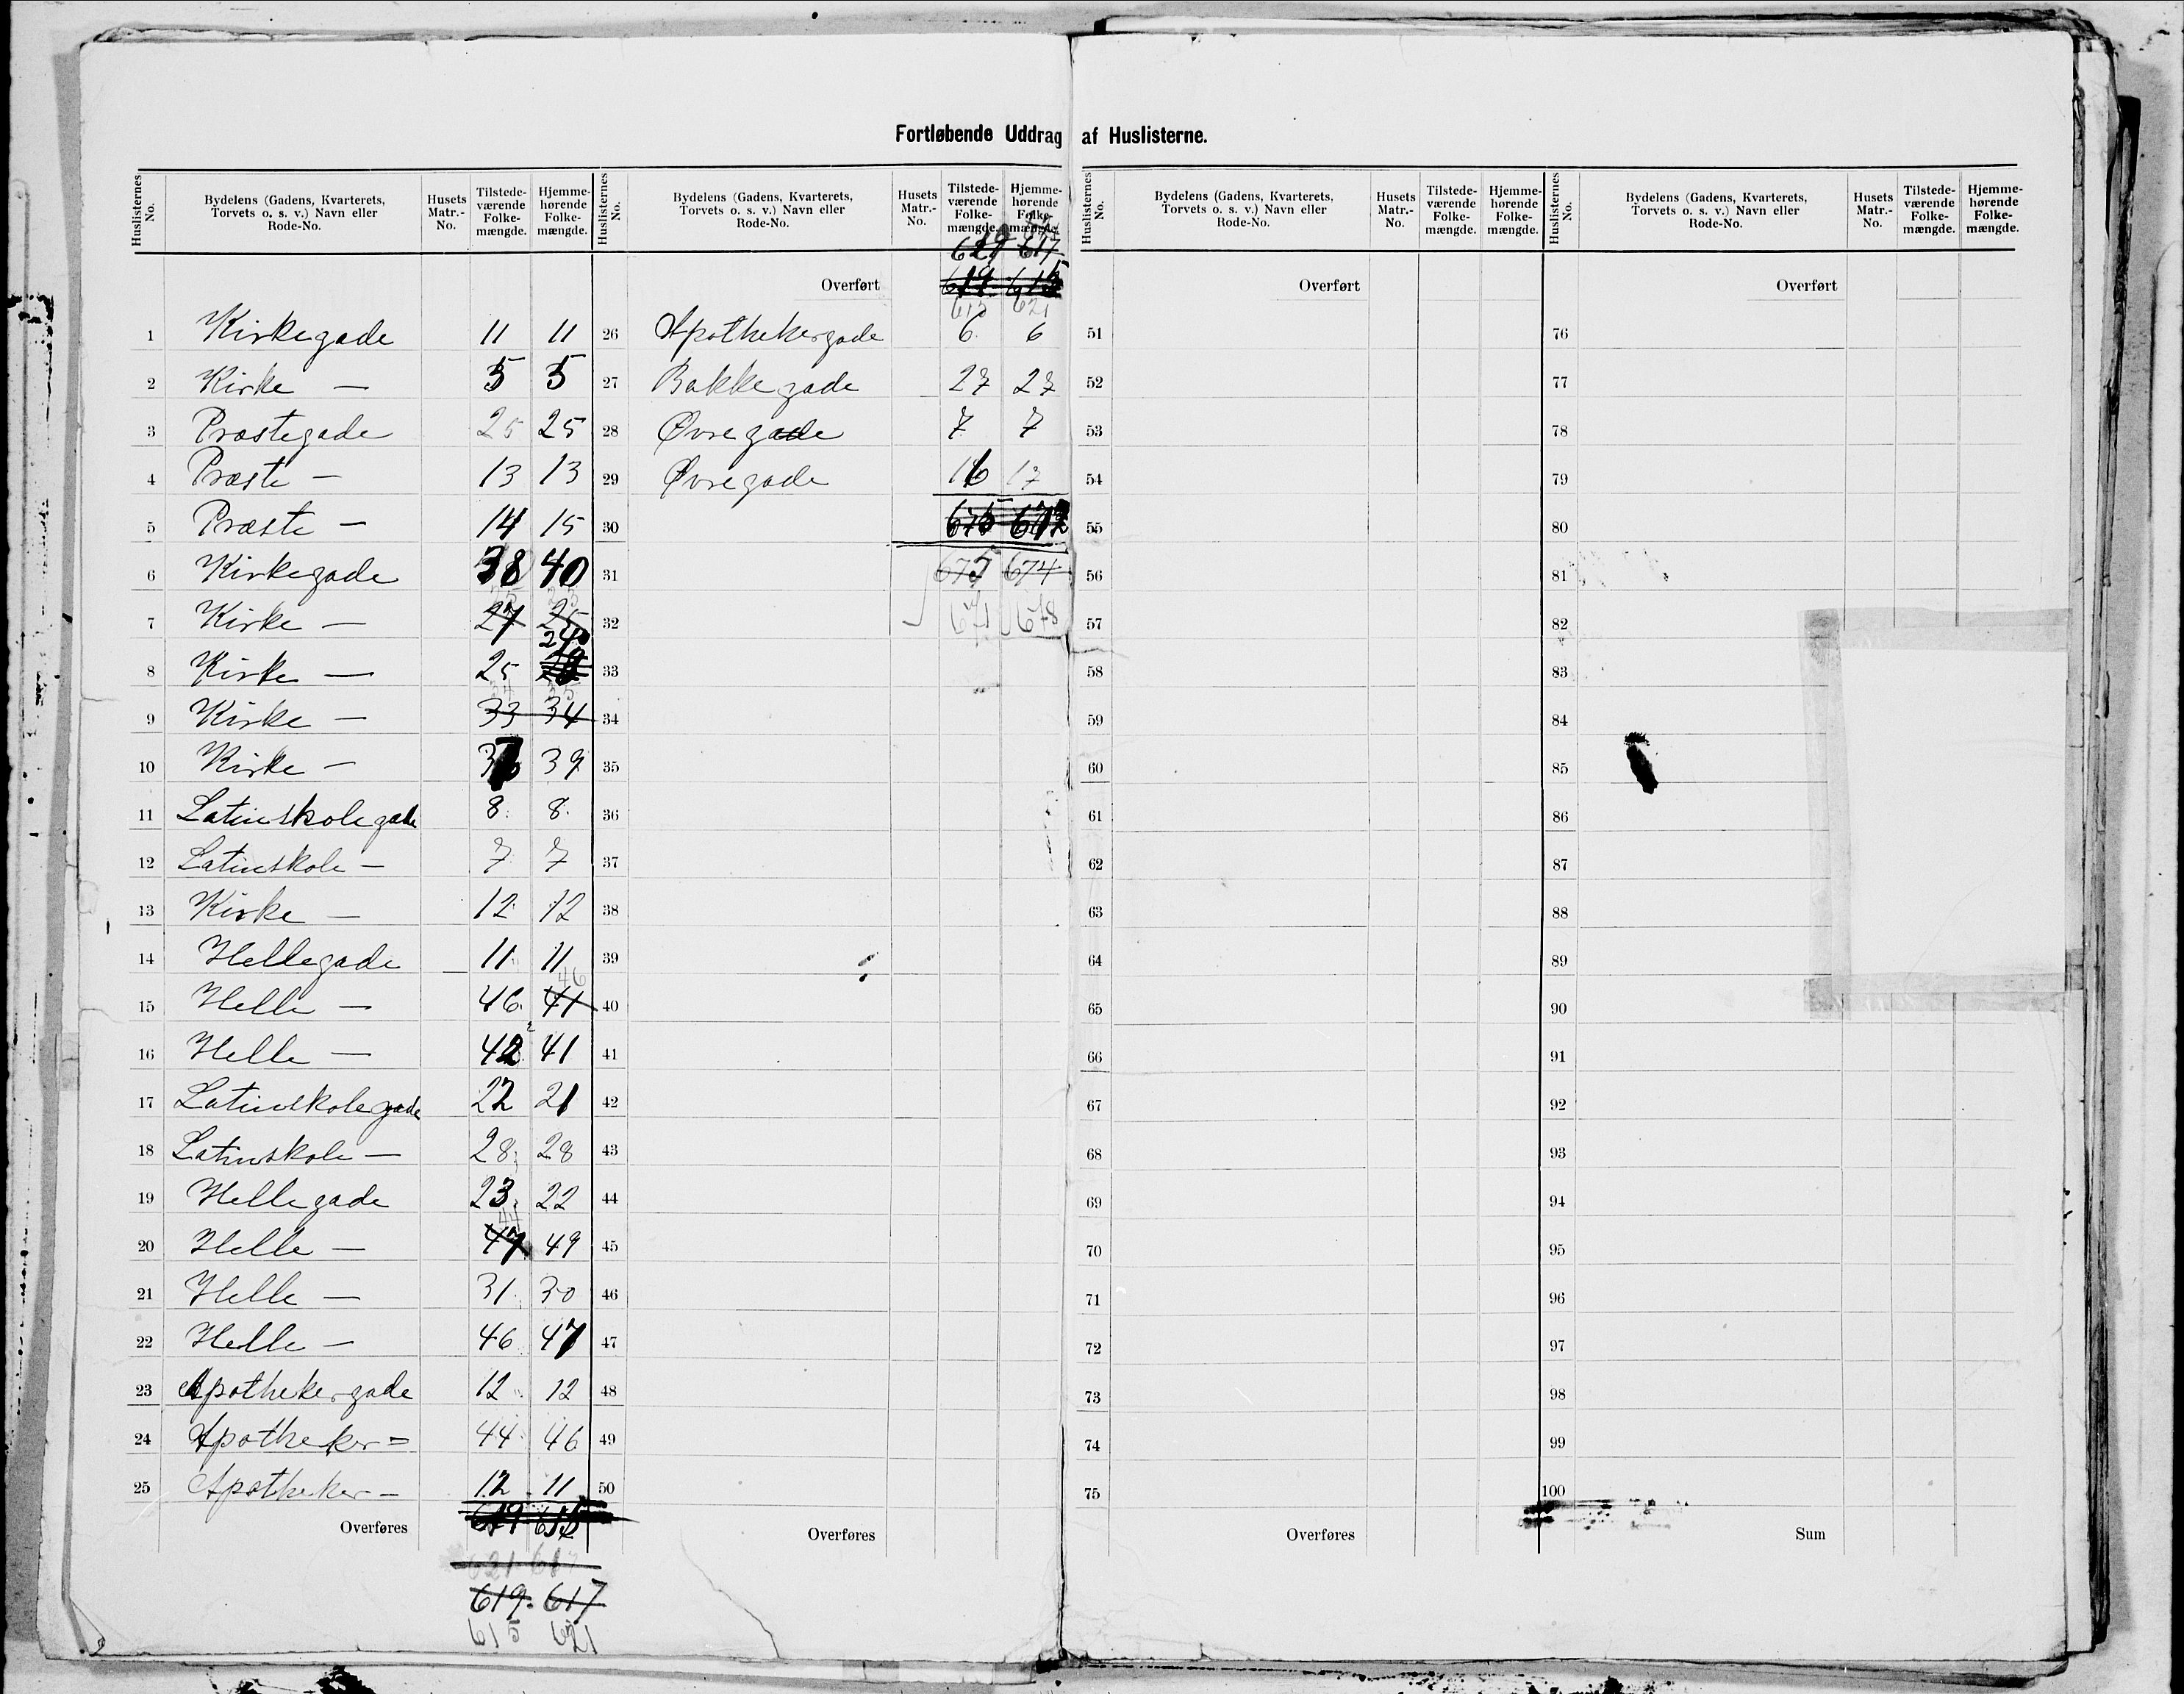 Fortløbende Uddrag af Huslisterne.
Huslisternes No. Bydelens (Gadens, Kvarterets, Torvets o. s. v.) Navn eller Rode-No. Husets Matr.-No. Tilstede-værende Folke-mængde. Hjemme-hørende Folke-mængde.
1 Kirkegade 11 11
2 Kirke — 5 5
3 Præstegade 25 25
4 Præste — 13 13
5 Præste — 14 15
6 Kirkegade 38 40
7 Kirke — 27 25
8 Kirke — 25 24
9 Kirke — 33 34
10 Kirke — 37 39
11 Latinskolegade 8 8
12 Latinskole — 7 7
13 Kirke — 12 12
14 Hellegade 11 11
15 Helle — 46 41 46
16 Helle — 42 41
17 Latinskolegade 22 21
18 Latinskole — 28 28
19 Hellegade 23 22
20 Helle — 47 44 49
21 Helle — 31 30
22 Helle — 46 47
23 Apothekergade 12 12
24 Apotheker = 44 46
25 Apotheker — 12 11
Overføres 619 615
621 617
619 617
615 621
Huslisternes No. Bydelens (Gadens, Kvarterets, Torvets o. s. v.) Navn eller Rode-No. Husets Matr.-No. Tilstede-værende Folke-mængde. Hjemme-hørende Folke-mængde.
617
Overført 615
615 621
26 Apothekergade 6 6
27 Bakkegade 27 27
28 Øvregade 7 7
29 Øvregade 16 17
30 675 672
31 675 674
32 671 678
33
34
35
36
37
38
39
40
41
42
43
44
45
46
47
48
49
50
Overføres
Huslisternes No. Bydelens (Gadens, Kvarterets, Torvets o. s. v.) Navn eller Rode-No. Husets Matr.-No. Tilstede-værende Folke-mængde. Hjemme-hørende Folke-mængde.
Overført
51
52
53
54
55
56
57
58
59
60
61
62
63
64
65
66
67
68
69
70
71
72
73
74
75
Overføres
Huslisternes No. Bydelens (Gadens, Kvarterets, Torvets o. s. v.) Navn eller Rode-No. Husets Matr.-No. Tilstede-værende Folke-mængde. Hjemme-hørende Folke-mængde.
Overført
76
77
78
79
80
81
82
83
84
85
86
87
88
89
90
91
92
93
94
95
96
97
98
99
100
Sum